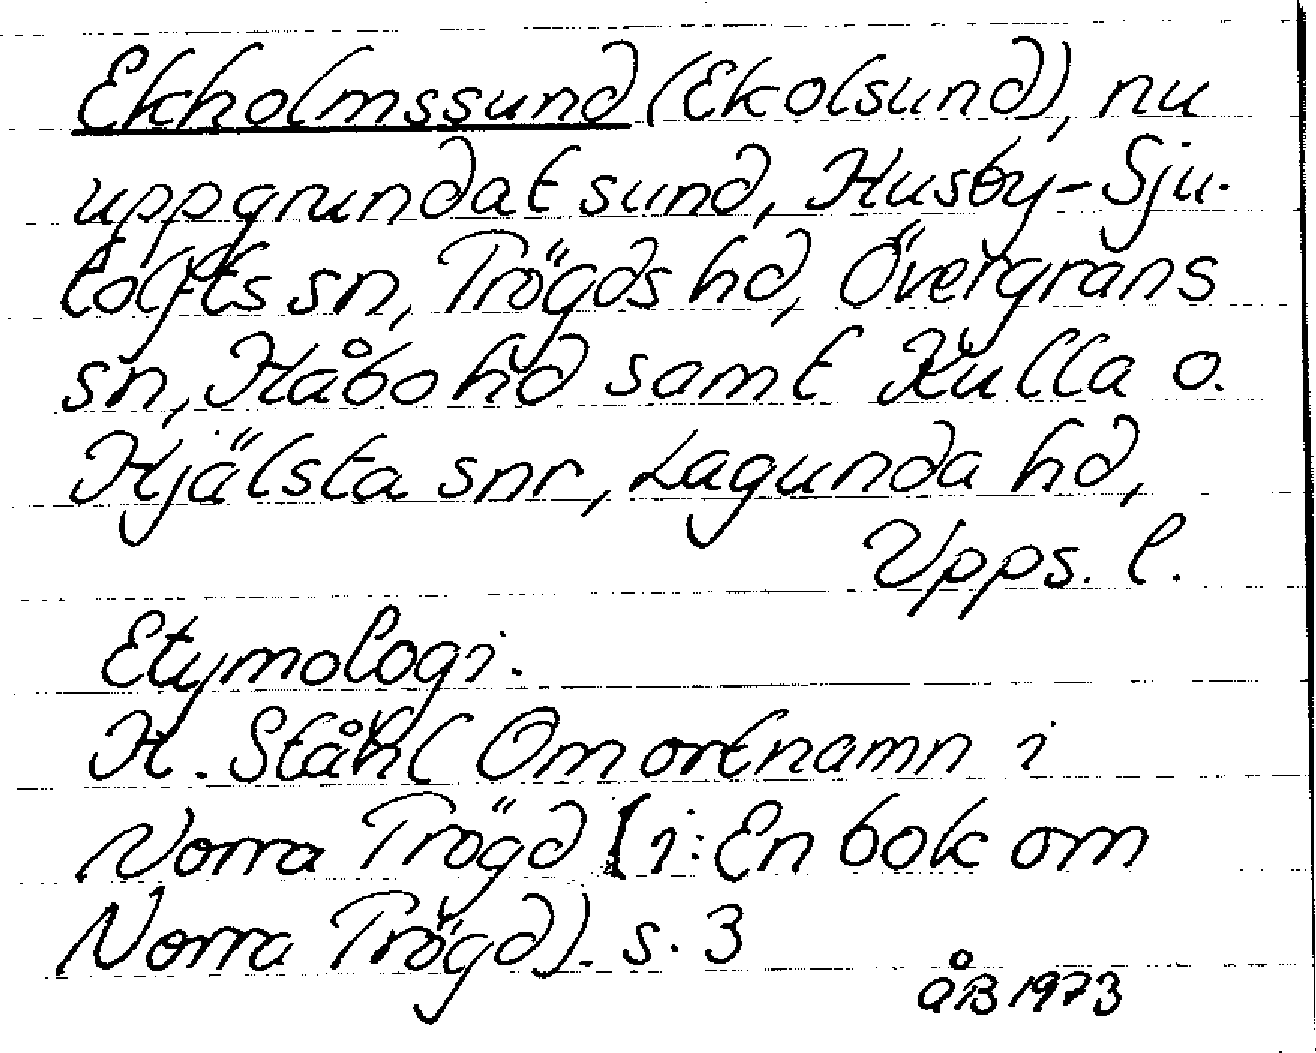 Ekholmssund (Ekolsund), nu
uppgrundat sund, Husby-Sju-
tolfts sn, Trögds hd, Övergrans
sn, Håbo hd samt Kulla o.
Hjälsta snr, Lagunda hd,
Upps. l.
Etymologi.
H. Ståhl Om ortnamn i
Norra Trögd (i: En bok om
Norra Trögd). s. 3
ÅB 1973